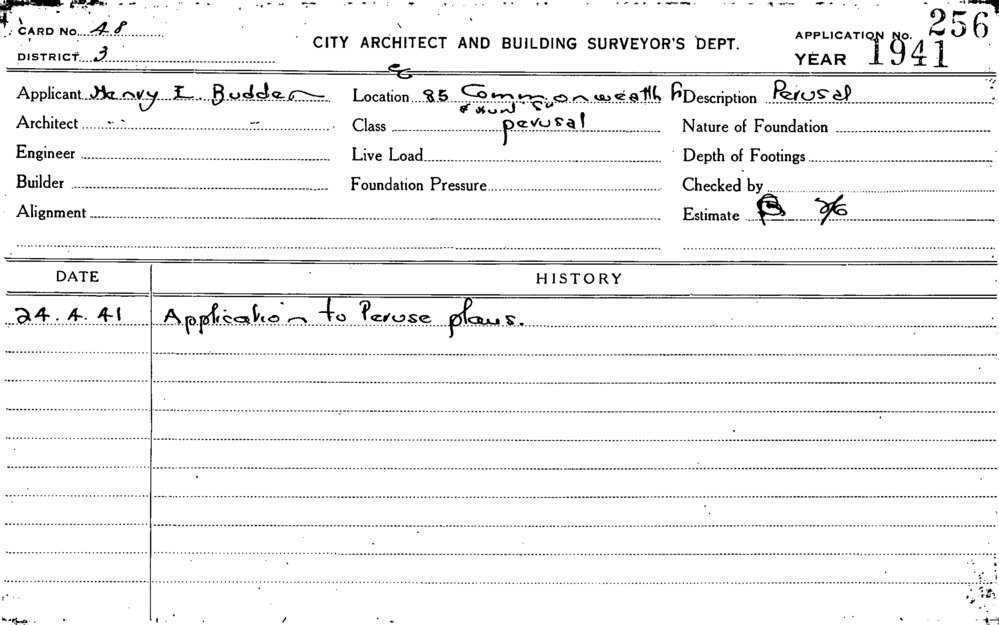 CARD No. 48
DISTRICT 3
CITY ARCHITECT AND BUILDING SURVEYOR'S DEPT.
APPLICATION No. 256
YEAR 1941
Applicant Henry E Budden Location 85 Commonwealth Description Perusal
& Hunt St
Architect Class perusal Nature of Foundation
Engineer Live Load Depth of Footings
Builder Foundation Pressure Checked by
Alignment Estimate 2/6
DATE HISTORY
24.4.41 Application to Peruse plans.